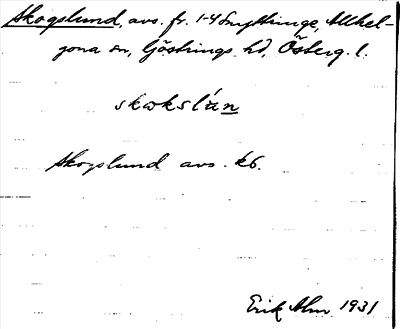 Skogslund, avs. fr. 1-4 Smyttinge, Allhel-
gona sn, Göstrings hd, Österg. l.
skωkslún
Skogslund avs. kb.
Erik Alm 1931